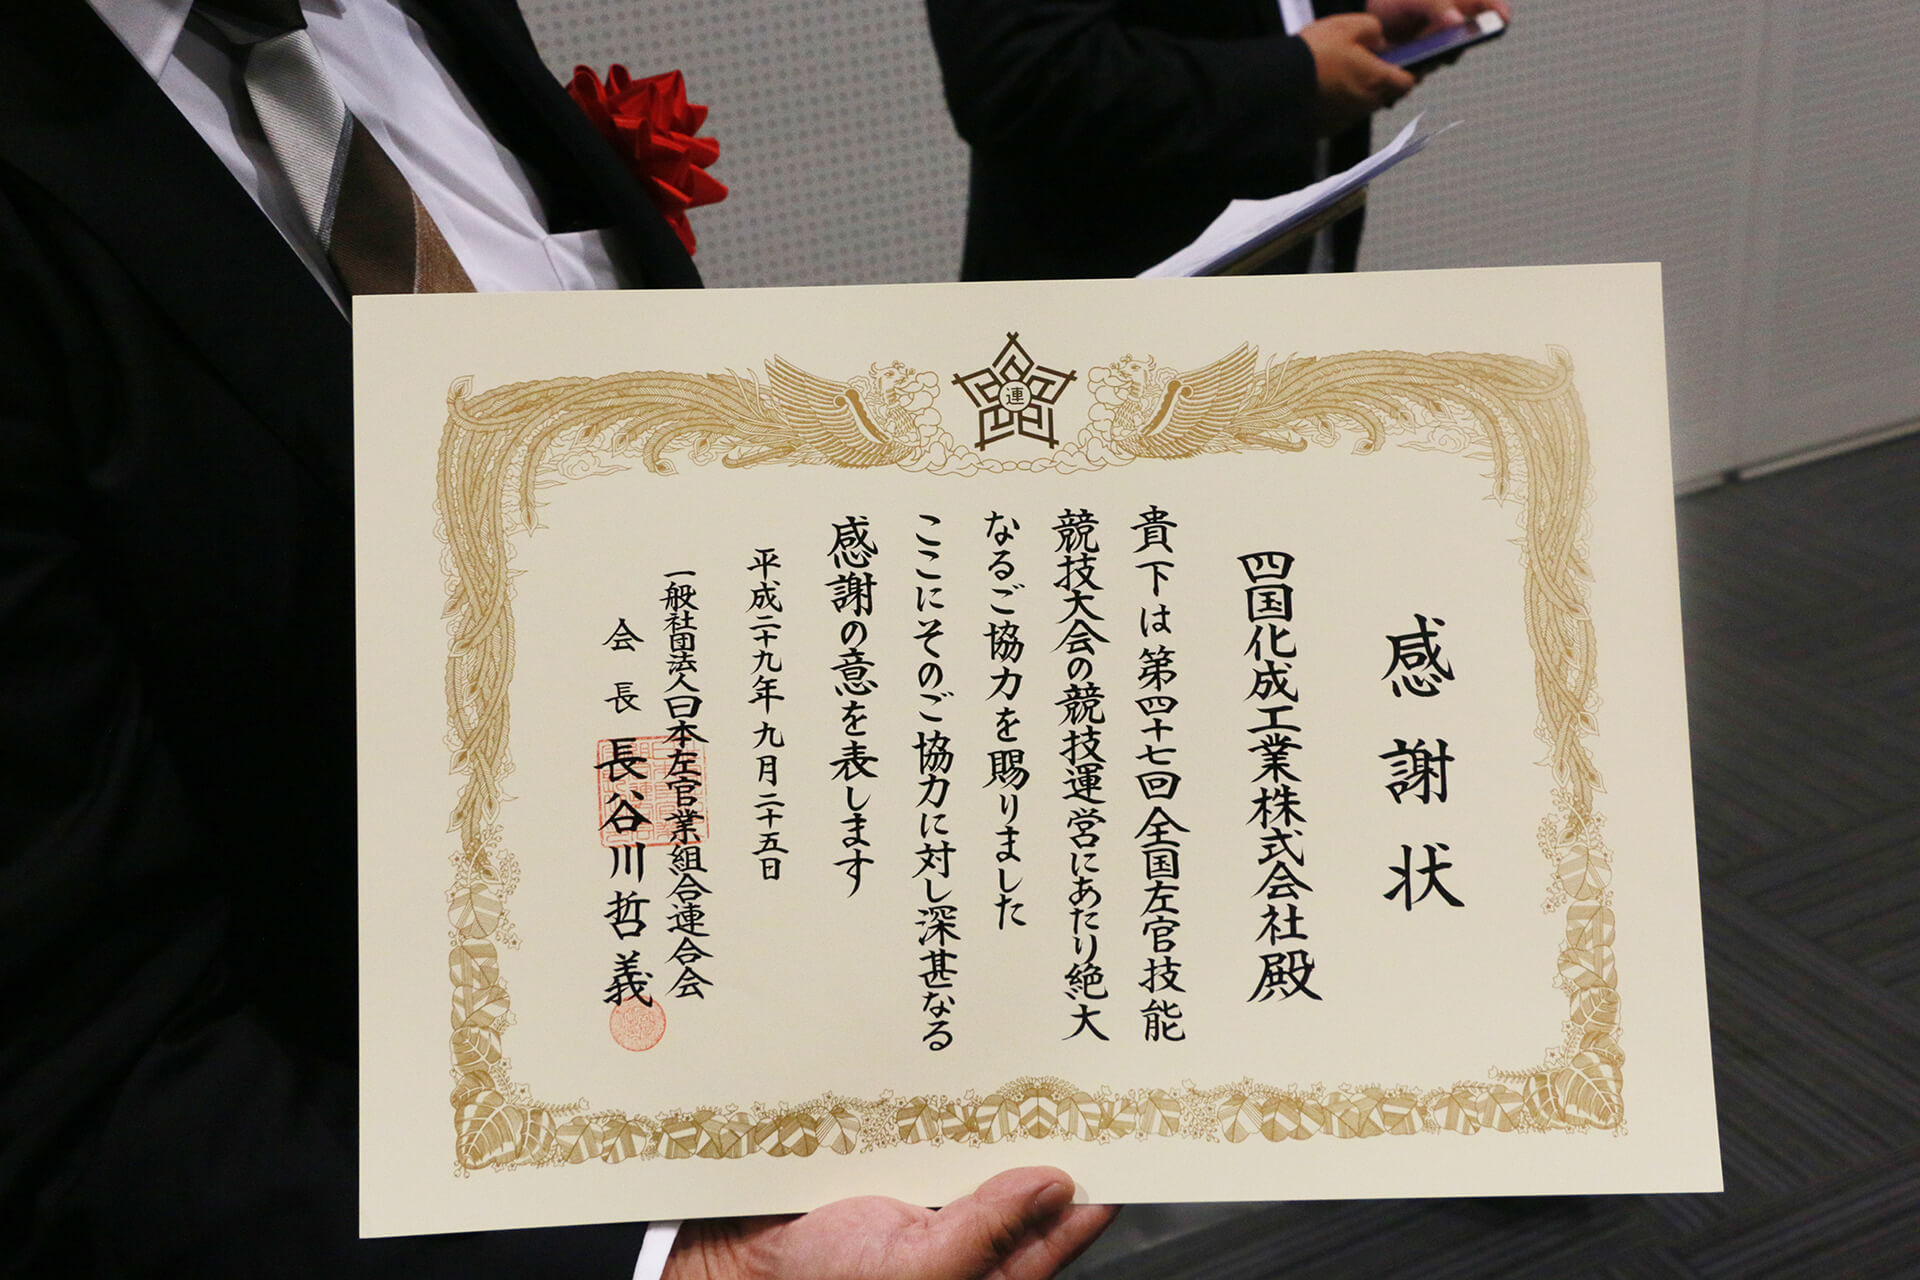 連
感謝状
四国化成工業株式会社殿
貴下は第四十七回全国左官技能
競技大会の競技運営にあたり絶大
なるご協力を賜りました
ここにそのご協力に対し深甚なる
感謝の意を表します
平成二十九年九月二十五日
一般社団法人日本左官業組合連合会
会長 長谷川哲義